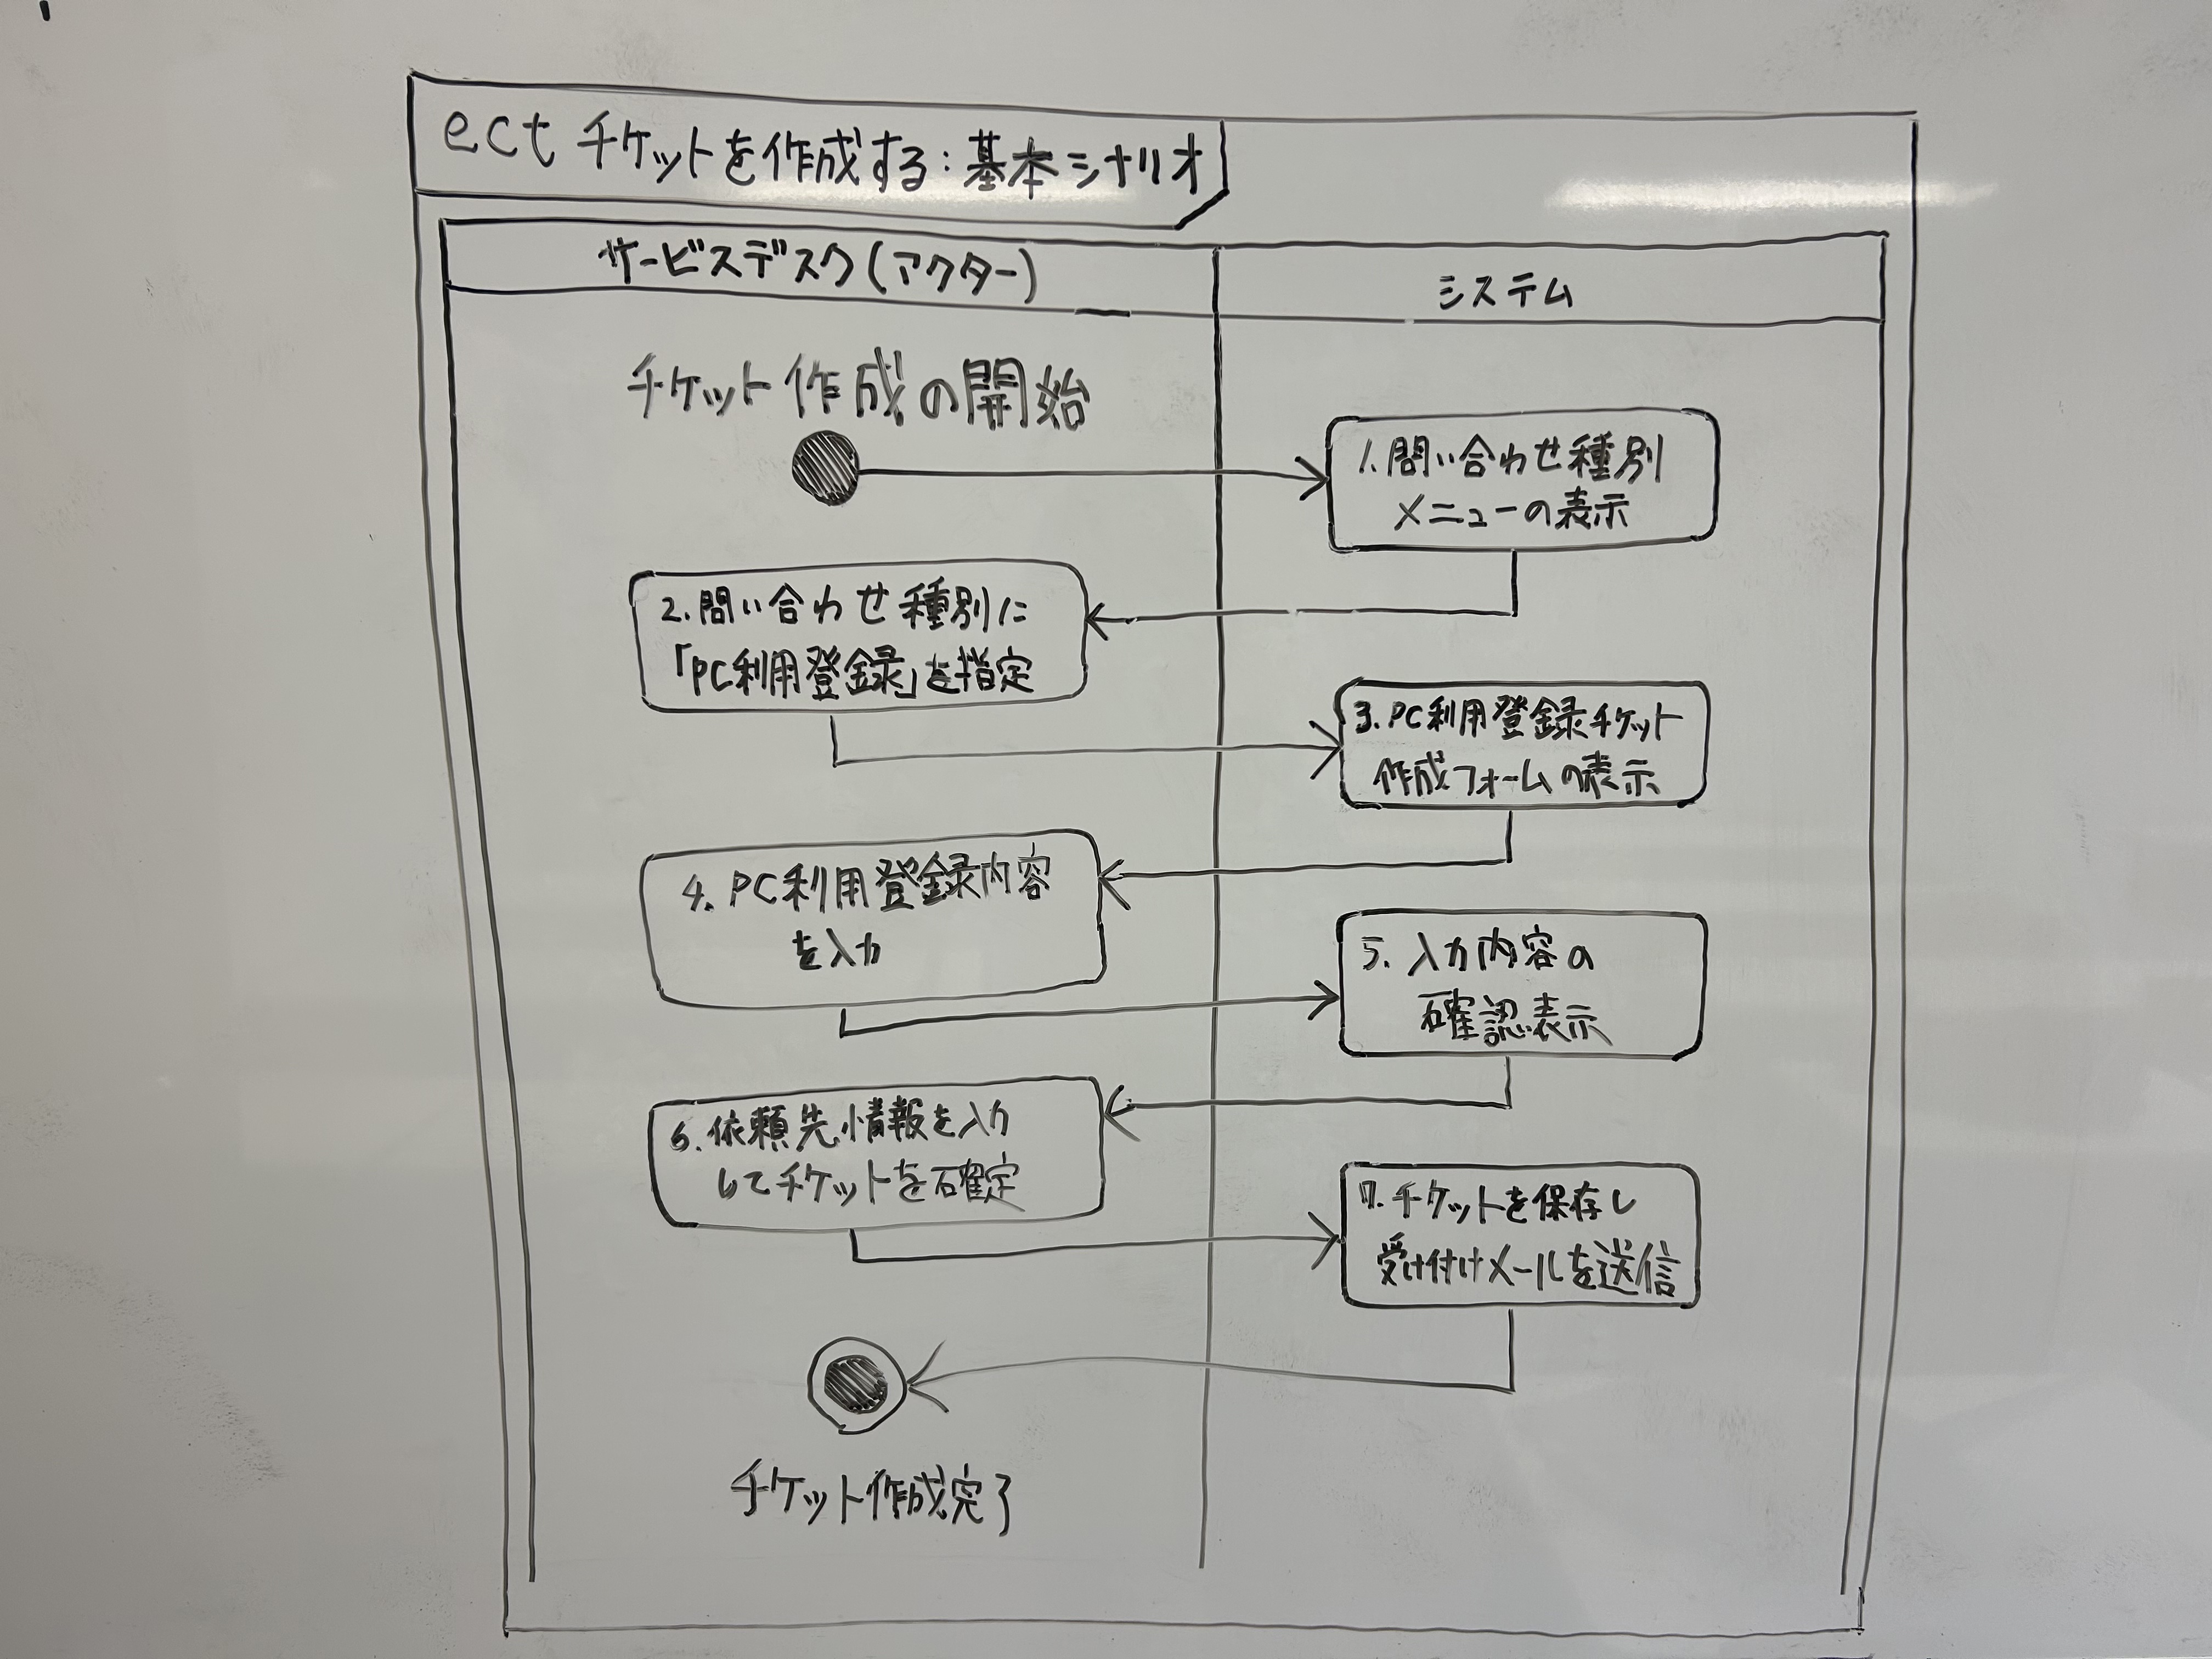 ect チケットを作成する:基本シナリオ
サービスデスク(アクター)
システム
チケット作成の開始
1.問い合わせ種別
メニューの表示
2.問い合わせ種別に
「PC利用登録」を指定
3.PC利用登録チケット
作成フォームの表示
4.PC利用登録内容
を入力
5.入力内容の
確認表示
6.依頼先情報を入力
してチケットを確定
7.チケットを保存し
受け付けメールを送信
チケット作成完了